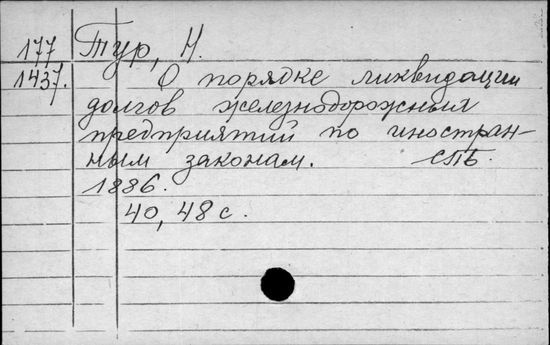 177 Тур, Н.
1437. О порядке ликвидации
долгов железнодорожных
предприятий по иностран-
ным законам. СПБ.
1886.
40, 48 с.